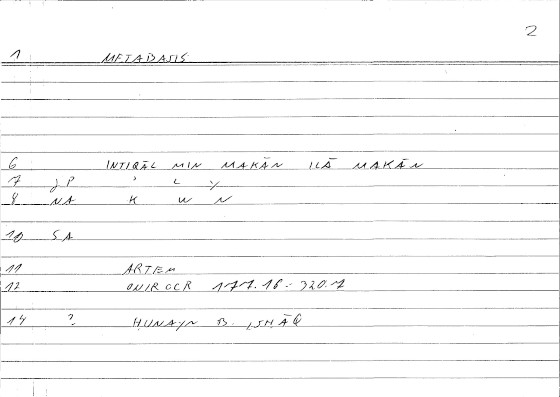 2
1 METABASIS
6 INTIQĀL MIN MAKĀN ILĀ MAKĀN
7
8 NA K W N
10 SA
11 ARTEM
12 ONIROCR
14 ? ḤUNAYN B. ISḤĀQ